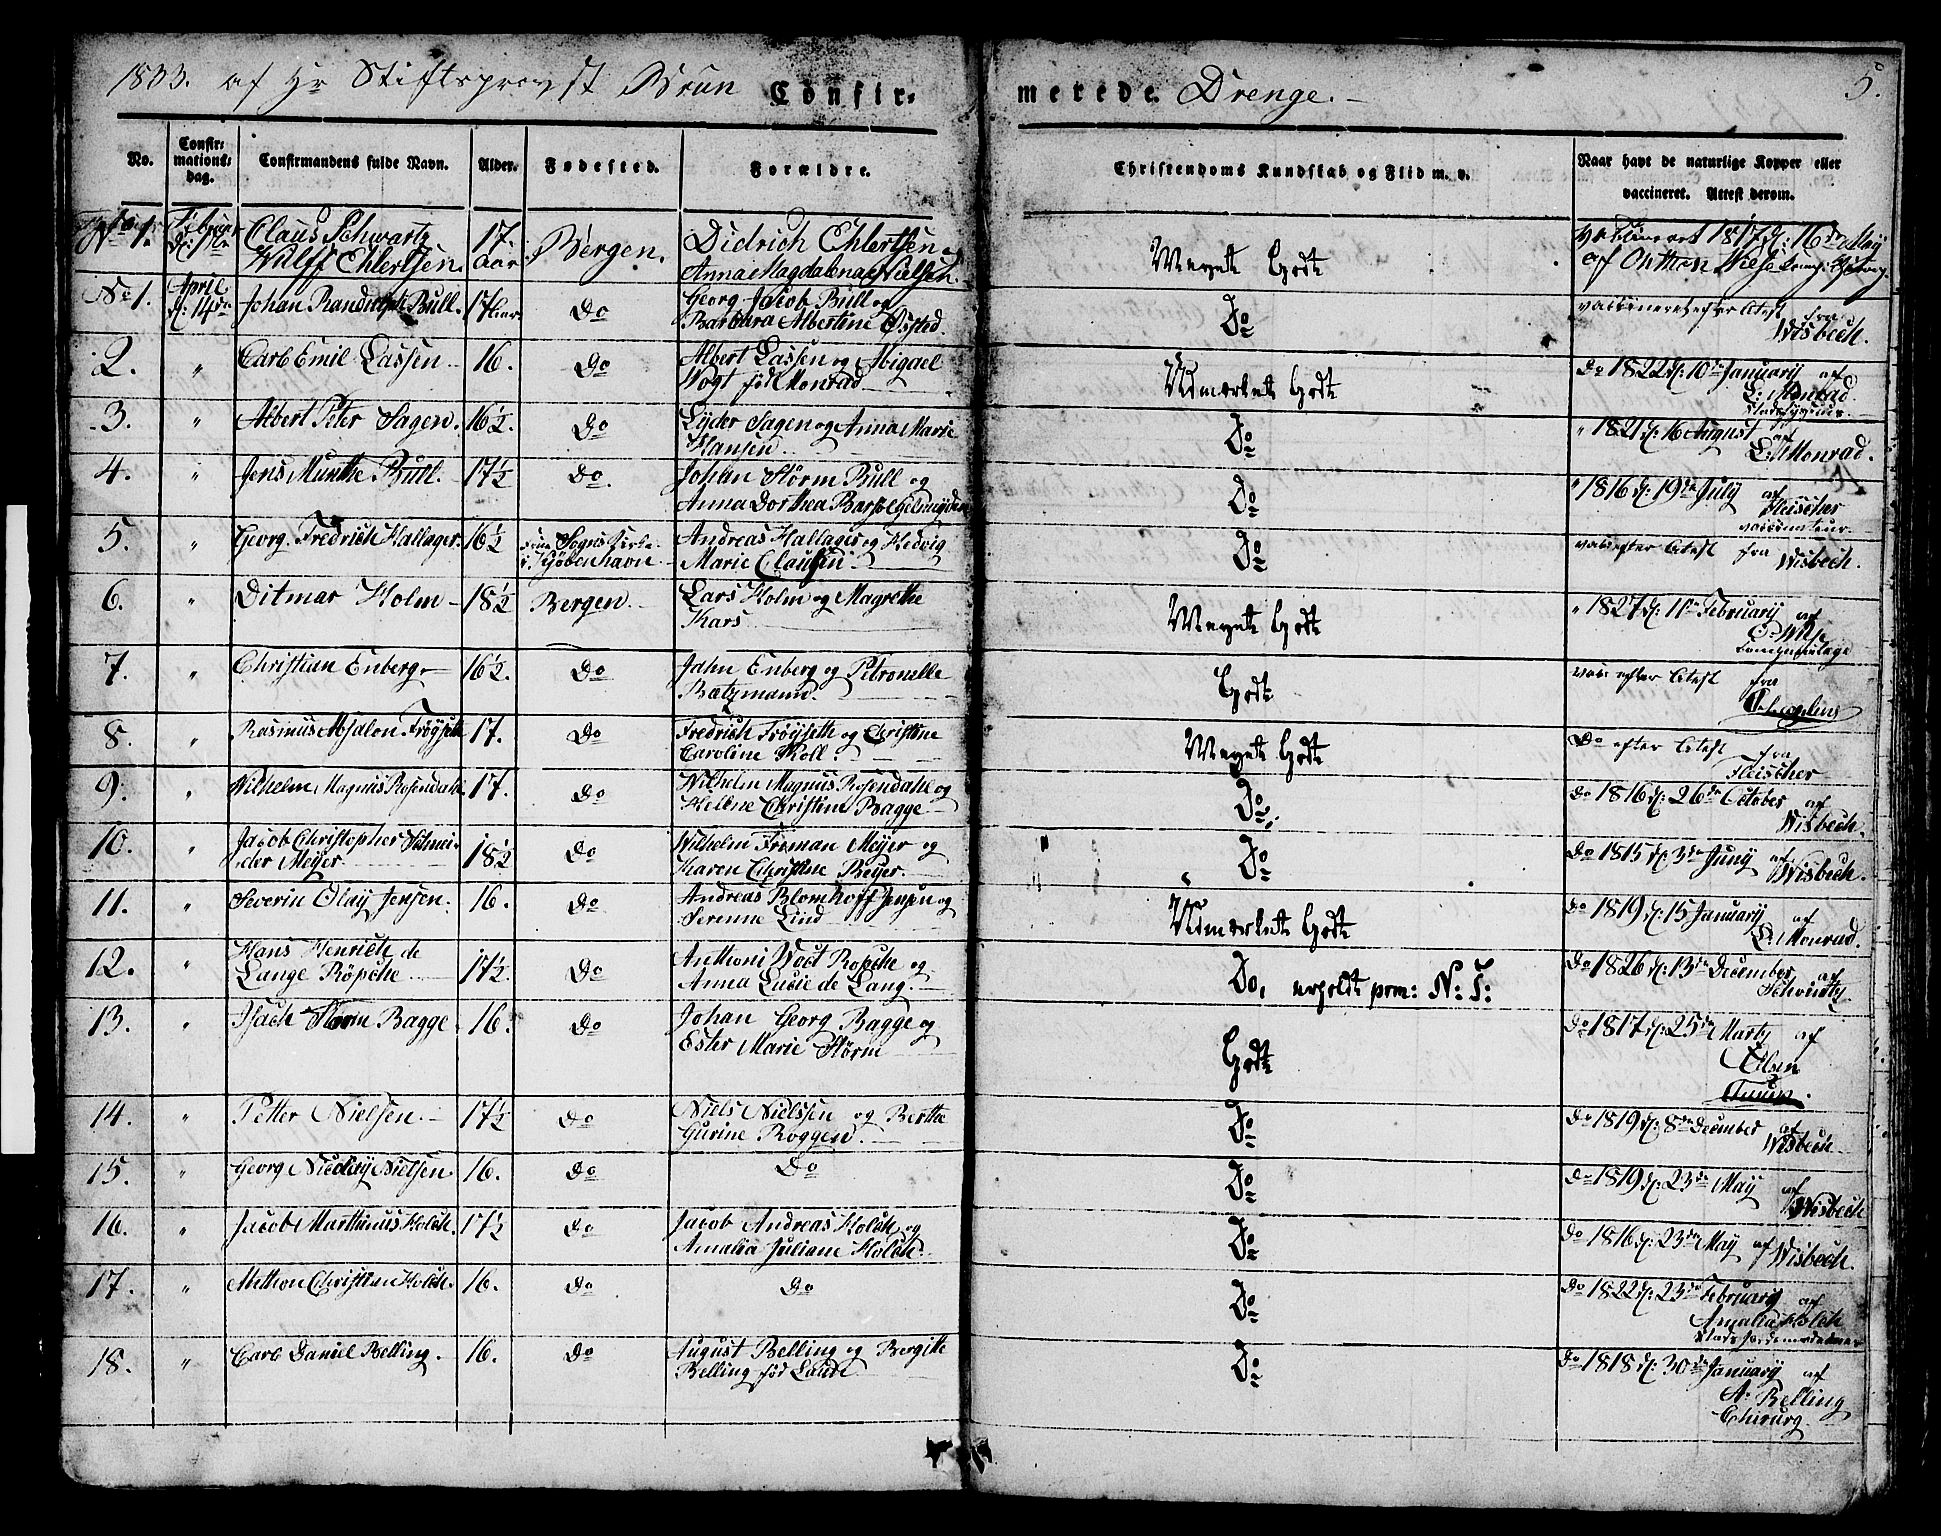 1833. af Hr Stiftsprovst Brun Confir- merede Drenge. 5.
No. Confirmationsdag. Confirmandens fulde Navn. Alder. Fødested. Forældre. Christendoms Kundskab og Flid m. v. Naar havt de naturlige Kopper eller vaccineret. Attest derom.
No 1. Claus Schwartz Wulff Ehlertsen. 17 aar Bergen. Didrich Ehlertsen Anna Magdalena Nielsen Meget Godt
No 1. April d: 14de Johan Randulph Bull. 17 aar Do Georg Jacob Bull og Barbara Albertine Østed. Do vaccineret efter Atest fra Wisbech.
2. " Carl Emil Lassen 16. Do Albert Lassen og Abigael Vogt fød Monrad Udmerket Godt Do 1822 d: 10de January af L: Monrad.
3. " Albert Peter Sagen. 16½. Do Lyder Sagen og Anna Marie Hansen. Do " 1821 d: 16 August af L: Monrad.
4. " Jens Munthe Bull. 17½ Do. Johan Störm Bull og Anna Dorthea Do " 1816 d: 19de July af Fleischer vaccinateur
5. " Georg Fredrich Hallager. 16½ Sogns Kirke i Kjøbenhavn Andreas Hallager og Hedvig Marie Clausen Do vac: efter Atest fra Wisbech.
6. " Ditmar Holm 18½ Bergen Lars Holm og Magrethe Kars Meget Godt " 1827 d: 11te February af
7. " Christian Enberg 16½. Do Jahn Enberg og Petronelle Batzmann. Godt vac: efter Atest fra
8. " Rasmus Absalon Fröyseth 17. Do Fredrich Fröyseth og Christine Caroline Koll. Meget Godt Do efter Atest fra Fleischer
9. " Wilhelm Magnus Rosendahl. 17. Do Wilhelm Magnus Rosendahl og Hellene Christine Bagge Do. Do 1816 d: 26de October af Wisbech.
10. " Jacob Christopher Schneider Meyer 18½ Do Wilhelm Friman Meyer og Karen Christine Beyer. Do Do 1815 d: 3de Juny af Wisbech.
11. " Severin Olay Jensen. 16. Do Andreas Blomhoff Jensen og Serenne Lind Udmerket Godt Do 1819 d: 15 January af L: Monrad.
12. " Hans Henrich de Lange Röpche 17½. Do Anthoni Woct Ropche og Anna Lucie de Lang. Do, Do 1826 d: 13de December af
13. " Isach Störm Bagge. 16. Do Johan Georg Bagge og Ester Marie Störm Godt Do 1817 d: 25de Marty af Olsen
14. " Petter Nielsen. 17½ Do Niels Nielssen og Berthe Gurine Roggen. Do Do 1819 d: 8de December af Wisbech
15. " Georg Nicolay Nielsen 16. Do Do Do Do 1819 d: 23de May af Wisbech
16. " Jacob Marthinus Holck. 17½ Do Jacob Andreas Holck og Amalia Juliane Holck. Do Do 1816 d: 23de May af Wisbech.
17. " Milthon Christian Holck. 16. Do Do Do Do 1822 d: 23de February af Amalia Holck
18. " Carl Daniel Belling. 16. Do August Belling og Bergitte Belling fød Lande Do Do 1818 d: 30de January af A: Belling Chirurg